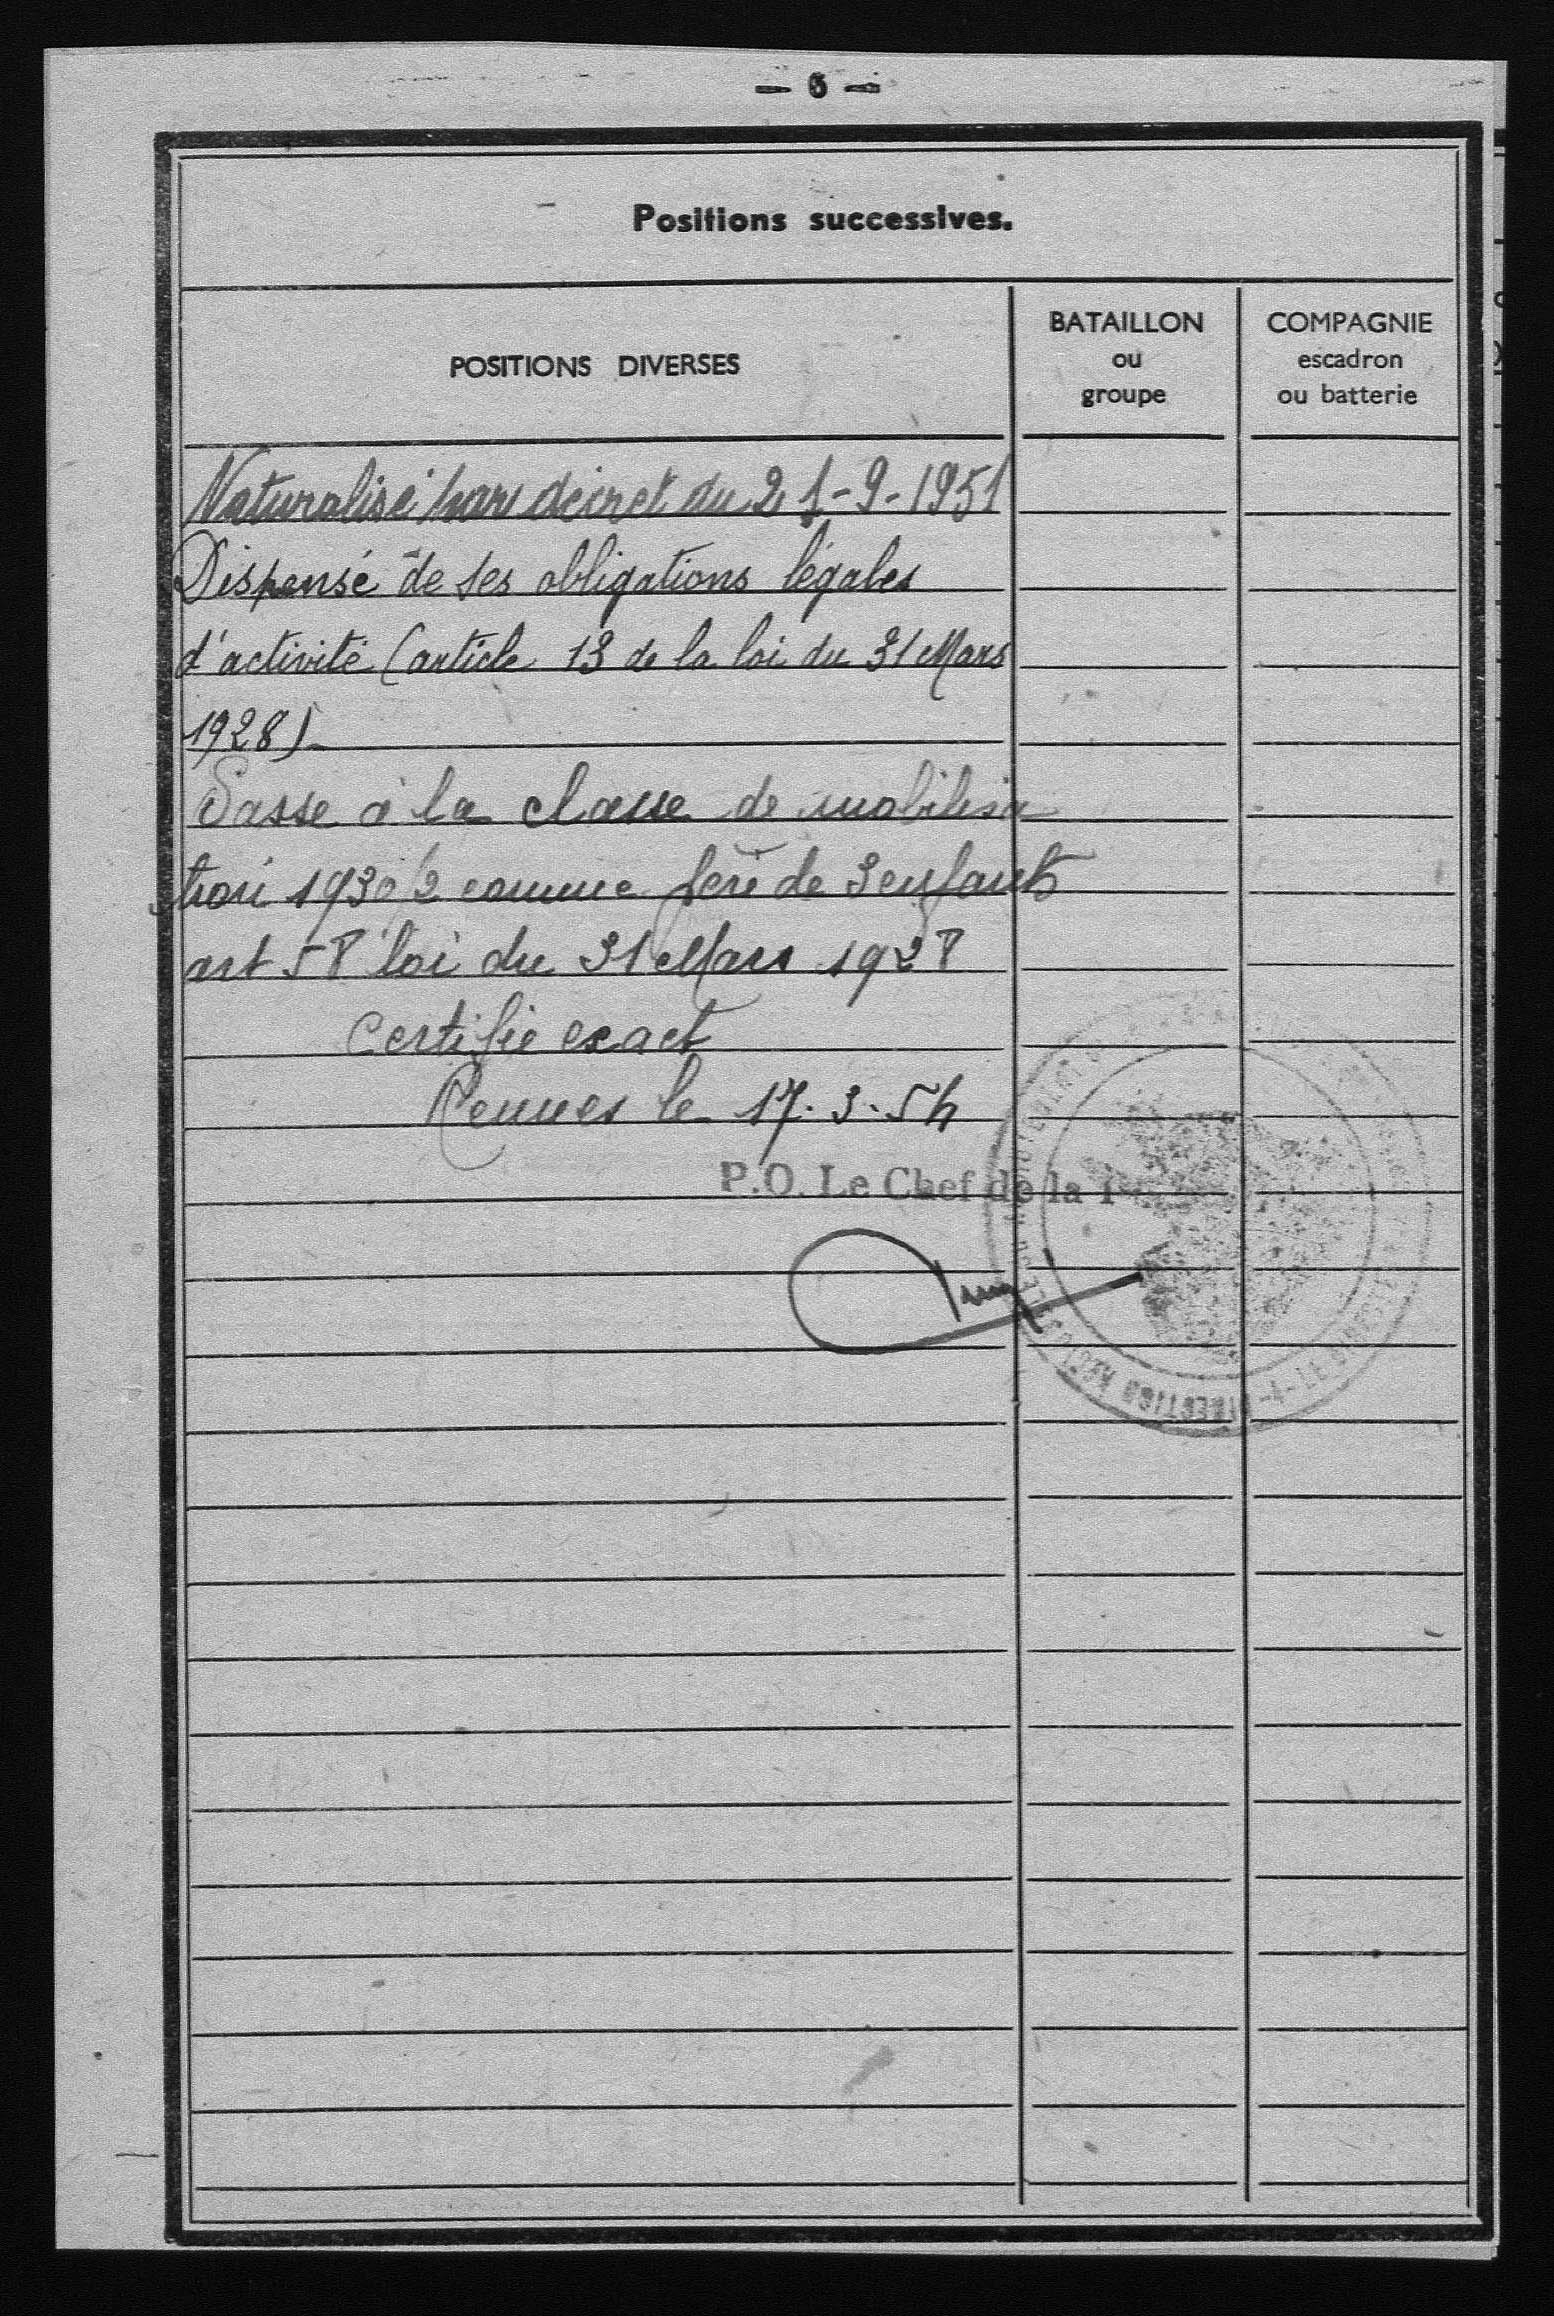 — 6 —
Positions successives.
POSITIONS DIVERSES
BATAILLON
ou
groupe
COMPAGNIE
escadron
ou batterie
Naturalisé par décret du 21-9-1951
Dispensé de ses obligations légales
d'activité (article 13 de la loi du 31 Mars
1928)
Passe à la classe de mobilisa
tion 1930/2 comme père de 3 enfants
art 58 loi du 31 Mars 1928
Certifié exact
Rennes le 17.3.54
P.O. Le Chef de la
DIRECTION